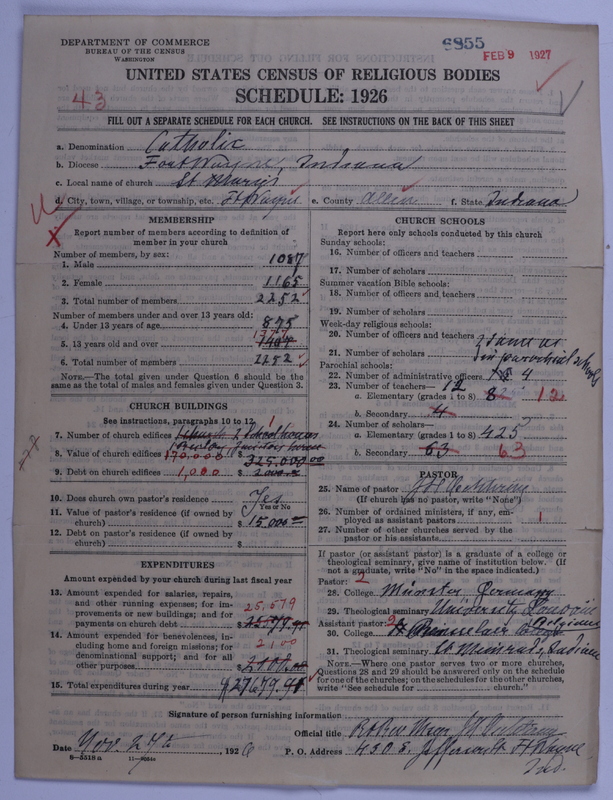 DEPARTMENT OF COMMERCE
BUREAU OF THE CENSUS
WASHINGTON
6855
FEB 9 1927
UNITED STATES CENSUS OF RELIGIOUS BODIES
SCHEDULE: 1926
43
FILL OUT A SEPARATE SCHEDULE FOR EACH CHURCH. SEE INSTRUCTIONS ON THE BACK OF THIS SHEET
a. Denomination Catholic
b. Diocese Fort Wayne, Indiana
c. Local name of church St Mary's
d. City, town, village, or township, etc. Ft Wayne e. County Allen f. State Indiana
MEMBERSHIP
Report number of members according to definition of
member in your church
Number of members, by sex:
1. Male 1087
2. Female 1165
3. Total number of members 2252
Number of members under and over 13 years old:
4. Under 13 years of age 875
5. 13 years old and over 1377
6. Total number of members 2252
NOTE.—The total given under Question 6 should be the
same as the total of males and females given under Question 3.
CHURCH BUILDINGS
See instructions, paragraphs 10 to 12
7. Number of church edifices 1
8. Value of church edifices 170,000 $ 325,000.00
9. Debt on church edifices 1,000 $
10. Does church own pastor's residence Yes
Yes or No
11. Value of pastor's residence (if owned by
church) $ 15,000
12. Debt on pastor's residence (if owned by
church) $
EXPENDITURES
Amount expended by your church during last fiscal year
13. Amount expended for salaries, repairs,
and other running expenses; for im-
provements or new buildings; and for
payments on church debt 25,579
14. Amount expended for benevolences, in-
cluding home and foreign missions; for
denominational support; and for all
other purposes 2100
15. Total expenditures during year $ 27679.41
CHURCH SCHOOLS
Report here only schools conducted by this church
Sunday schools:
16. Number of officers and teachers
17. Number of scholars
Summer vacation Bible schools:
18. Number of officers and teachers
19. Number of scholars
Week-day religious schools:
20. Number of officers and teachers same as
21. Number of scholars in parochial schools
Parochial schools:
22. Number of administrative officers 4
23. Number of teachers— 12
a. Elementary (grades 1 to 8) 8 12
b. Secondary 4
24. Number of scholars—
a. Elementary (grades 1 to 8) 425
b. Secondary 63 63
PASTOR
25. Name of pastor
(If church has no pastor, write "None")
26. Number of ordained ministers, if any, em-
ployed as assistant pastors 1
27. Number of other churches served by the
pastor or his assistants
If pastor (or assistant pastor) is a graduate of a college or
theological seminary, give name of institution below. (If
not a graduate, write "No" in the space indicated.)
Pastor: 2
28. College Münster Germany
29. Theological seminary University Belgium
Assistant pastor: 2
30. College
31. Theological seminary St Meinrad, Indiana
NOTE.—Where one pastor serves two or more churches,
Questions 28 and 29 should be answered only on the schedule
for one of the churches; on the schedules for the other churches,
write "See schedule for church."
Signature of person furnishing information
Official title Rt Rev Msgr
Date Nov. 27 1926 P. O. Address Jefferson St Ft Wayne
Ind.
8-5518a